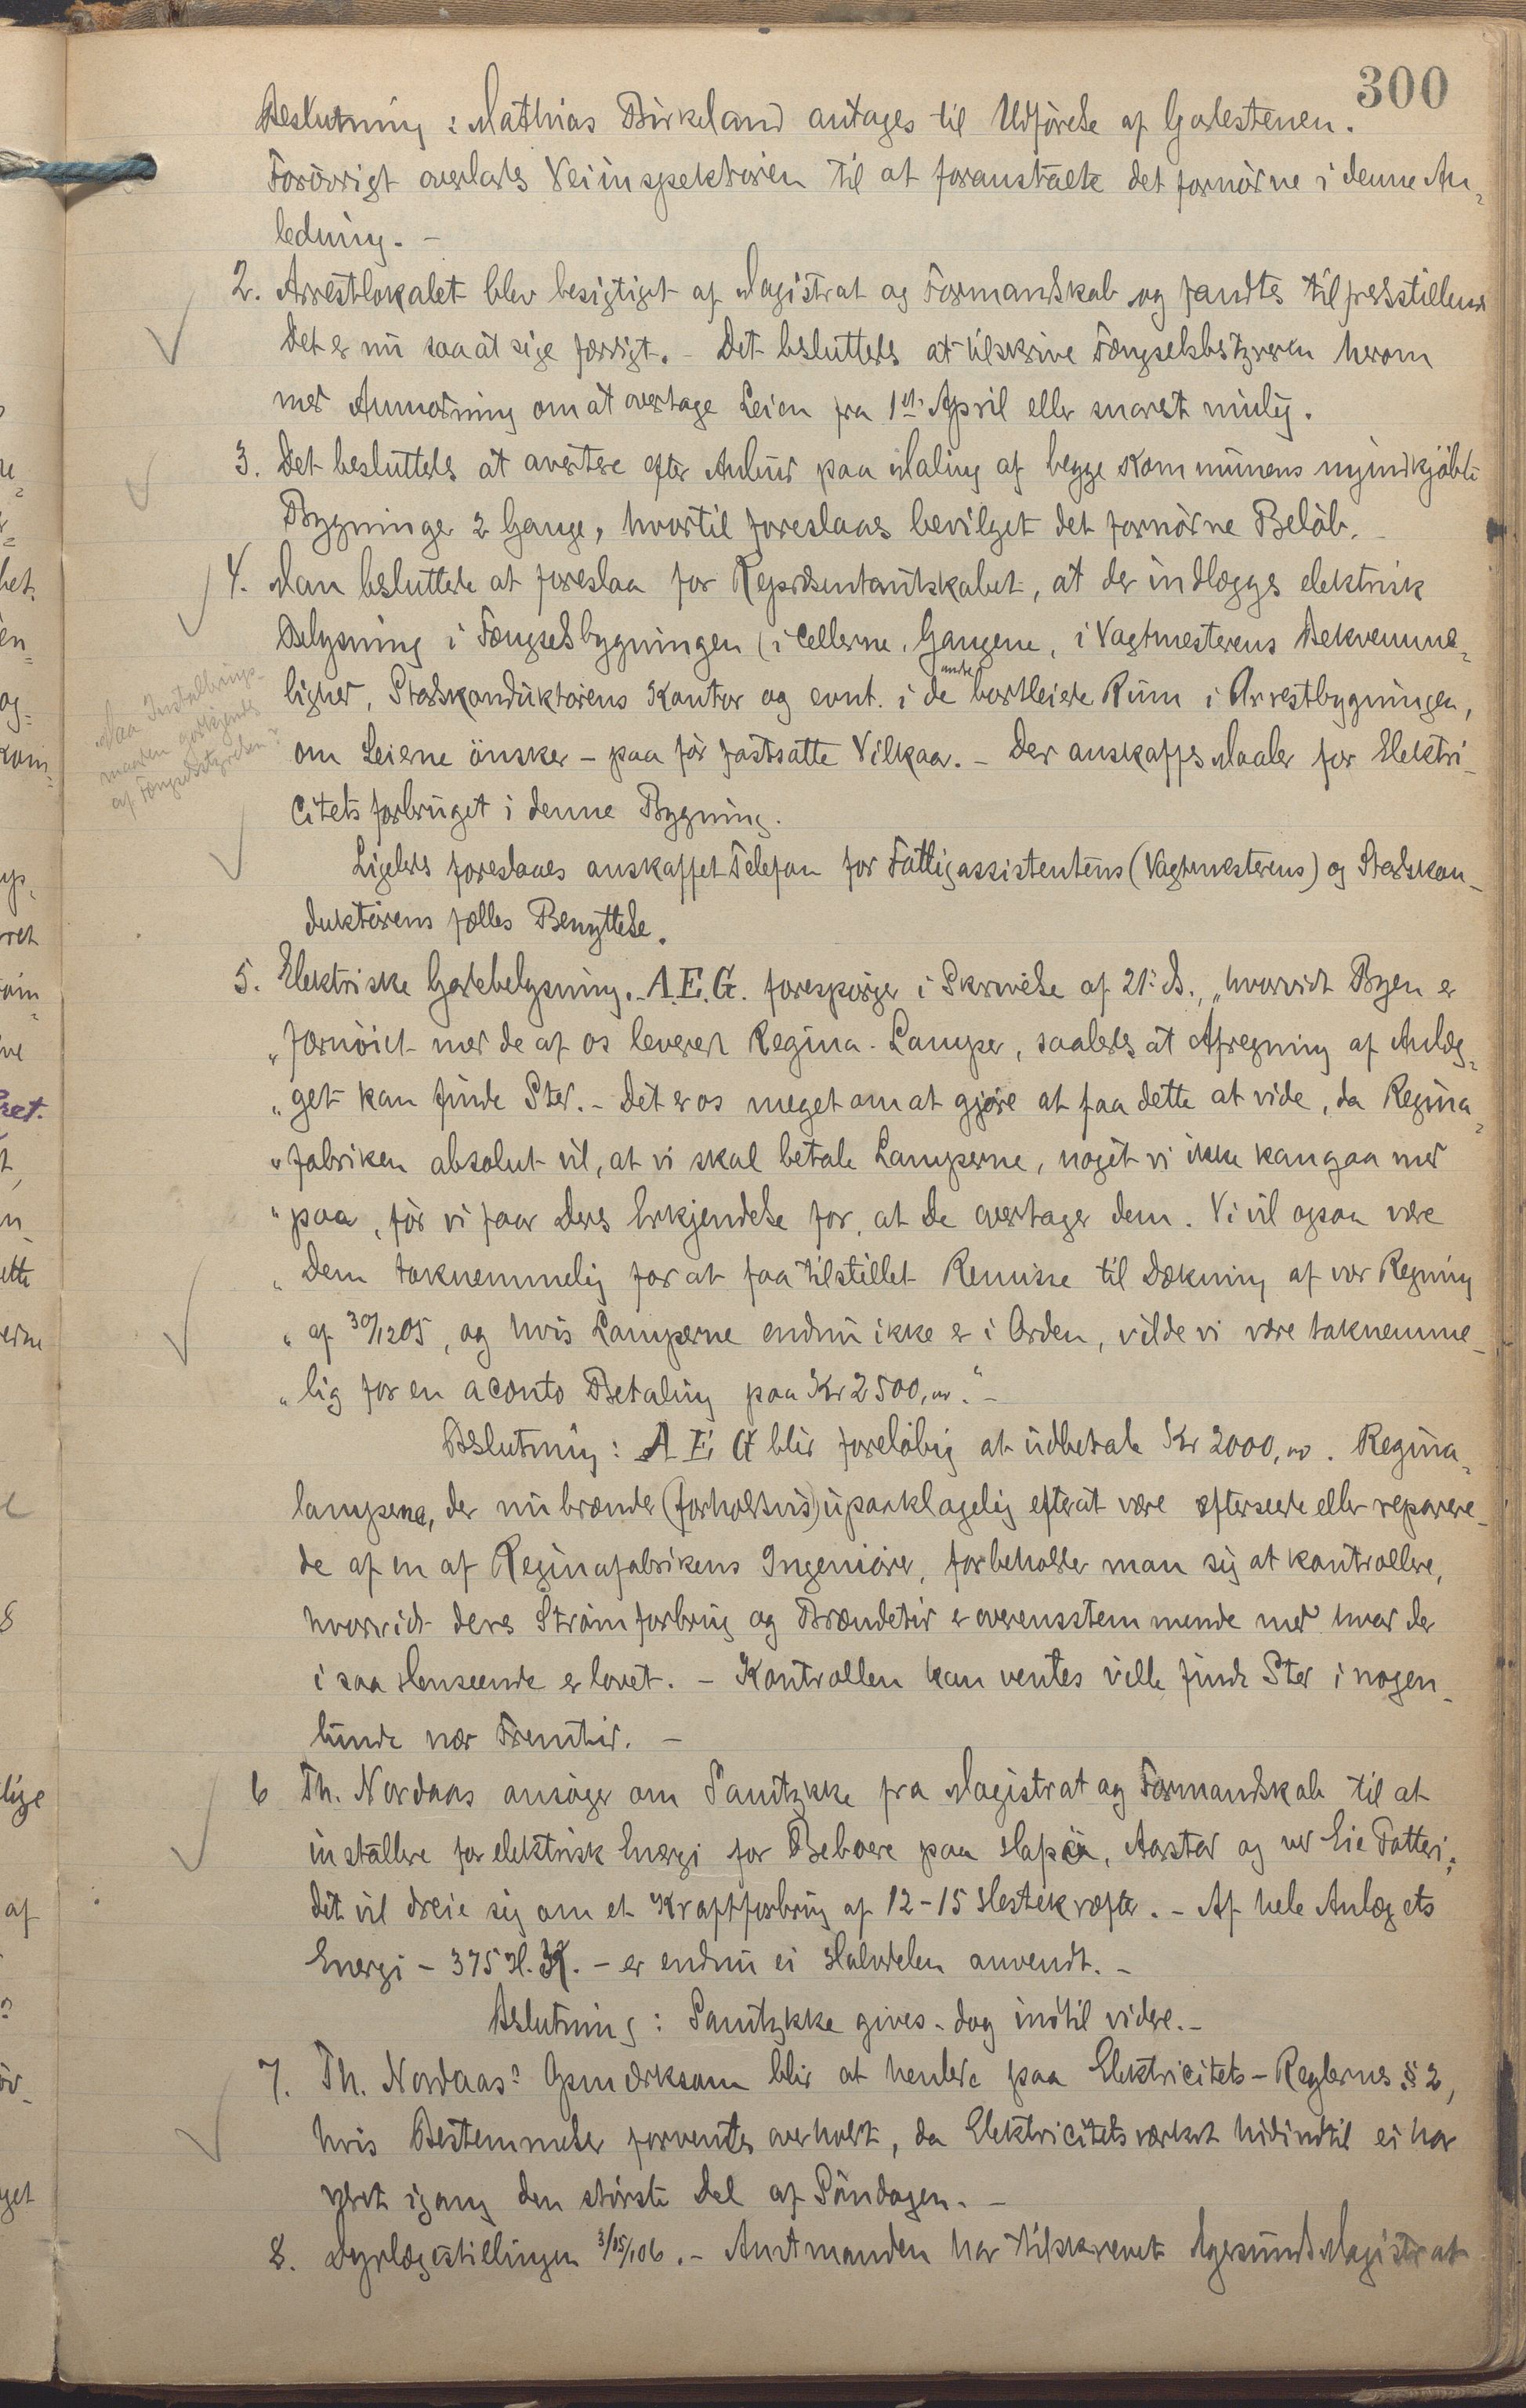 300
Beslutning: Mathias Birkeland antages til Udførelse af Gadestenen.
Forøvrigt overlades Veiinspektøren til at foranstalte det fornødne i denne An-
ledning. -
2. Arrestlokalet blev besigtiget af Magistrat og Formandskab og fandtes tilfredsstillende
Det er nu saa at sige færdigt. - Det besluttedes at tilskrive Fængselsbestyreren herom
med Anmodning om at overtage Leien fra 1ste April eller snarest mulig.
3. Det besluttedes at avertere efter Anbud paa Maling af begge Kommunens nyindkjøbte
Bygninger 2 Gange, hvortil foreslaaes bevilget det fornødne Beløb. -
4. Man besluttede at foreslaa for Repræsentantskabet, at der indlægges elektrisk
Belysning i Fængselsbygningen (i Cellerne, Gangene, i Vagtmesterens Bekvemme-
andre
lighed, Stadskonduktørens Kontor og event. i de bortleiede Rum i Arrestbygningen,
om Leierne ønsker - paa før fastsatte Vilkaar. - Der anskaffes Maaler for Elektri-
citetsforbruget i denne Bygning.
Maa Installerings-
maaden godkjendes
af Fængselsstyrelsen?
Ligeledes foreslaaes anskaffet Telefon for Fattigassistentens (Vagtmesterens) og Stadskon-
duktørens fælles Benyttelse.
5. Elektriske Gadebelysning. - A.E.G. forespørger i Skrivelse af 21. ds., „hvorvidt Byen er
„fornøiet med de af os leverede Regina-Lamper, saaledes at Afregning af Anlæg-
„get kan finde Sted. - Det er os meget om at gjøre at faa dette at vide, da Regina-
„fabriken absolut vil, at vi skal betale Lamperne, noget vi ikke kan gaa med
„paa, før vi faar Deres Erkjendelse for, at De overtager dem. Vi vil ogsaa være
„Dem taknemmelig for at faa tilstillet Remisse til Dækning af vor Regning
„af 30/12 05, og hvis Lamperne endnu ikke er i Orden, vilde vi være taknemme-
„lig for en aconto Betaling paa Kr 2500,00." -
Beslutning: A E G blir foreløbig at udbetale Kr 2000,00. Regina-
lamperne, der nu brænder (forholdsvis) upaaklagelig efter at være efterseede eller reparere-
de af en af Reginafabrikens Ingeniører, forbeholder man sig at kontrollere,
hvorvidt deres Strømforbrug og Brændetid er overensstemmende med hvad der
i saa Henseende er lovet. - Kontrollen kan ventes ville finde Sted i nogen-
lunde nær Fremtid. -
6 Th. Nordaas ansøger om Samtykke fra Magistrat og Formandskab til at
installere for elektrisk Energi for Beboere paa Hafsø, Aarstad og ved Eie Potteri;
det vil dreie sig om et Kraftforbrug af 12-15 Hestekræfter. - Af hele Anlægets
Energi - 375 H.K. - er endnu ei Halvdelen anvendt. -
Beslutning: Samtykke gives - dog indtil videre. -
7. Th. Nordaas' Opmærksom blir at henlede paa Elektricitets-Reglernes § 2,
hvis Bestemmelser forventes overholdt, da Elektricitetsværket hidindtil ei har
været igang den største Del af Søndagen. -
8. Dyrlægestillingen 3/105/06. - Amtmanden har tilskrevet Egersunds Magistrat